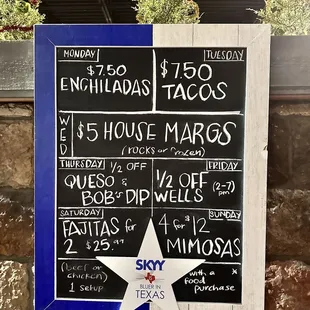 MONDAY
$7.50
ENCHILADAS
TUESDAY
$7.50
TACOS
WED
$5 HOUSE MARGS
(ROCKS OR FROZEN)
THURSDAY
1/2 OFF
QUESO &
BOB'S DIP
FRIDAY
1/2 OFF
WELLS
(2-7)
pm
SATURDAY
FAJITAS FOR
2 $25.99
(BEEF OR
CHICKEN)
1 SETUP
SUNDAY
4 FOR $12
MIMOSAS
with a
food
purchase
SKYY
BLUER IN
TEXAS